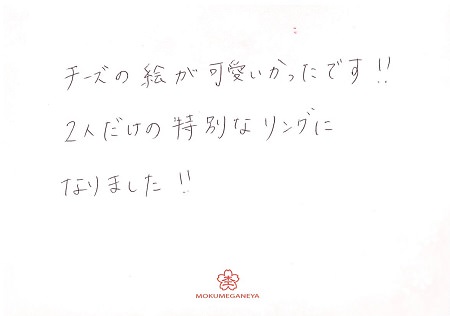 チーズの絵が可愛いかったです!!
2人だけの特別なリングに
なりました!!
MOKUMEGANEYA